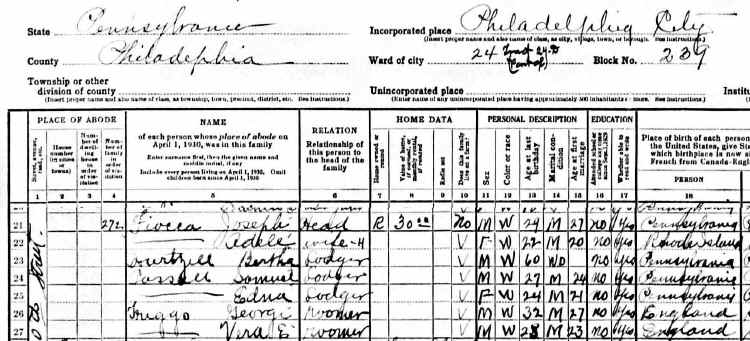 State Pennsylvania Incorporated place Philadelphia City
(Insert proper name and also name of class, as city, village, town, or borough. See instructions.)
County Philadelphia Ward of city 24 Block No. 239
Township or other
division of county Unincorporated place
(Insert proper name and also name of class, as township, town, precinct, district, etc. See instructions.) (Enter name of any unincorporated place having approximately 500 inhabitants or more. See instructions.)
PLACE OF ABODE NAME RELATION HOME DATA PERSONAL DESCRIPTION EDUCATION
of each person whose place of abode on
April 1, 1930, was in this family
Enter surname first, then the given name and
middle initial, if any
Include every person living on April 1, 1930. Omit
children born since April 1, 1930
Relationship of
this person to
the head of the
family
House
number
(in cities
or towns)
Number of dwelling house in order of visitation
Number of family in order of visitation
Home owned or rented
Value of home, if owned, or monthly rental, if rented
Radio set
Does this family live on a farm?
Sex
Color or race
Age at last birthday
Marital condition
Age at first marriage
Attended school or college any time since Sept. 1, 1929
Whether able to read and write
Place of birth of each person
the United States, give St
which birthplace is now si
French from Canada-Engl
PERSON
1 2 3 4 5 6 7 8 9 10 11 12 13 14 15 16 17 18
21 272 Fiocca Joseph Head R 30 00 No M W 29 M 27 no Yes Pennsylvania
22 Adele wife-H V F W 22 M 20 no Yes Rhode Island
23 Bertha Lodger V M W 60 WD no Yes Pennsylvania
24 Samuel Lodger V M W 27 M 24 no Yes Pennsylvania
25 Edna Lodger V F W 24 M 21 no Yes Pennsylvania
26 George Roomer V M W 32 M 27 no Yes England
27 Vera E Roomer V M W 28 M 23 no Yes England